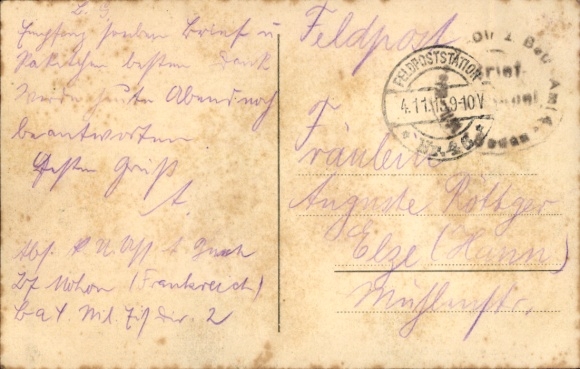 L. A.
Empfang soeben Brief u
Päckchen besten Dank
Werde heute Abend noch
beantworten
Besten Gruß
A.
Abs.
Bf Mohon (Frankreich)
Mil. Eis Dir. 2
Feldpost
FELDPOSTSTATION
4.11.15 9-10V
Brief
Fräulein
Auguste Röttger
Elze (Hann)
Mühlenstr.